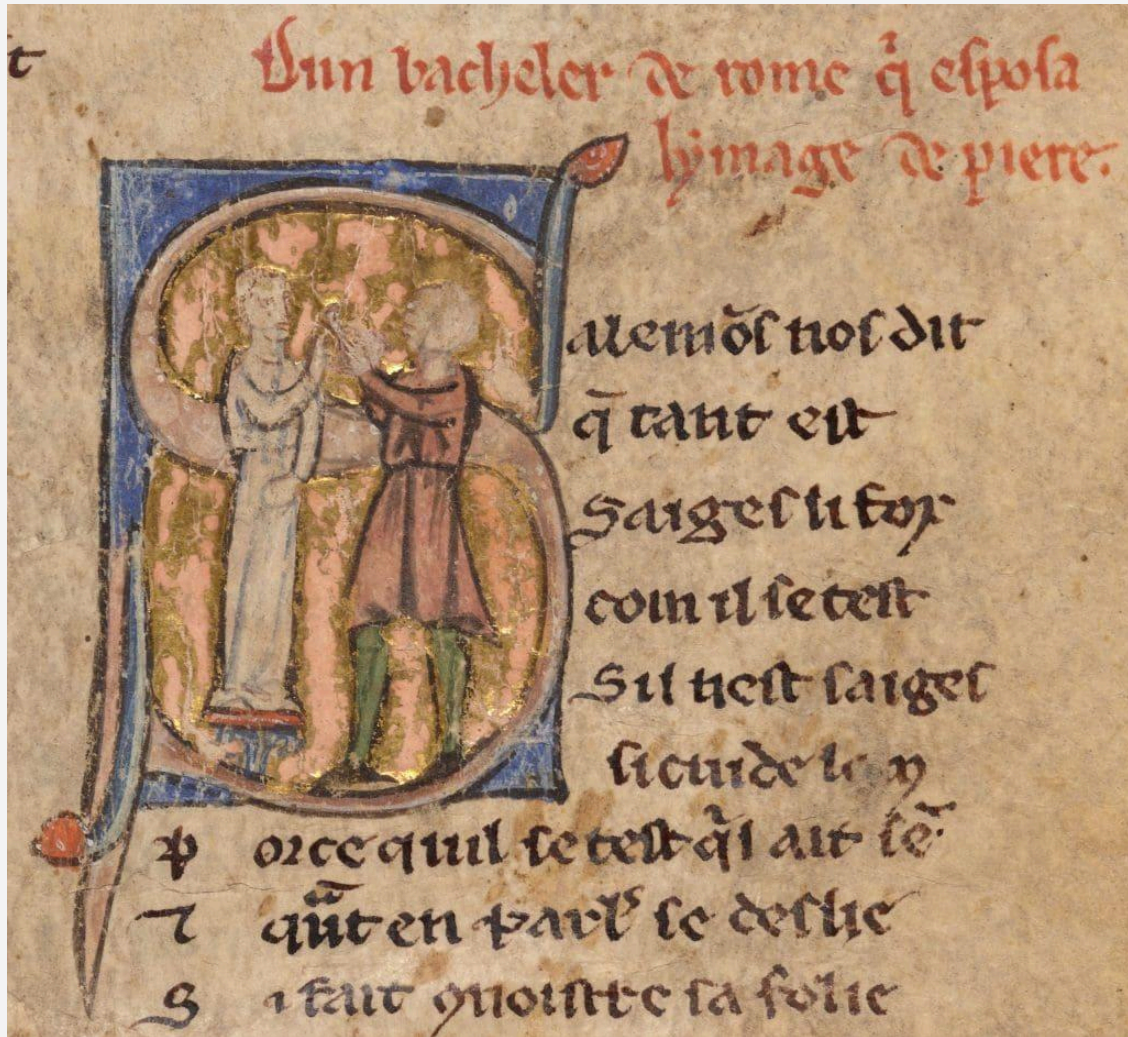 t
Dun bacheler de rome q̉ esposa
lymage de piere.
Salemõs nos dit
q̃ tant est
Saiges li fox
com il se test
Sil nest saiges
si cuide le ꝯ
P orce quil se test q̉l ait sẽ
⁊ q̃nt en parlˢ se deslie
S i fait ꝯnoistre sa folie